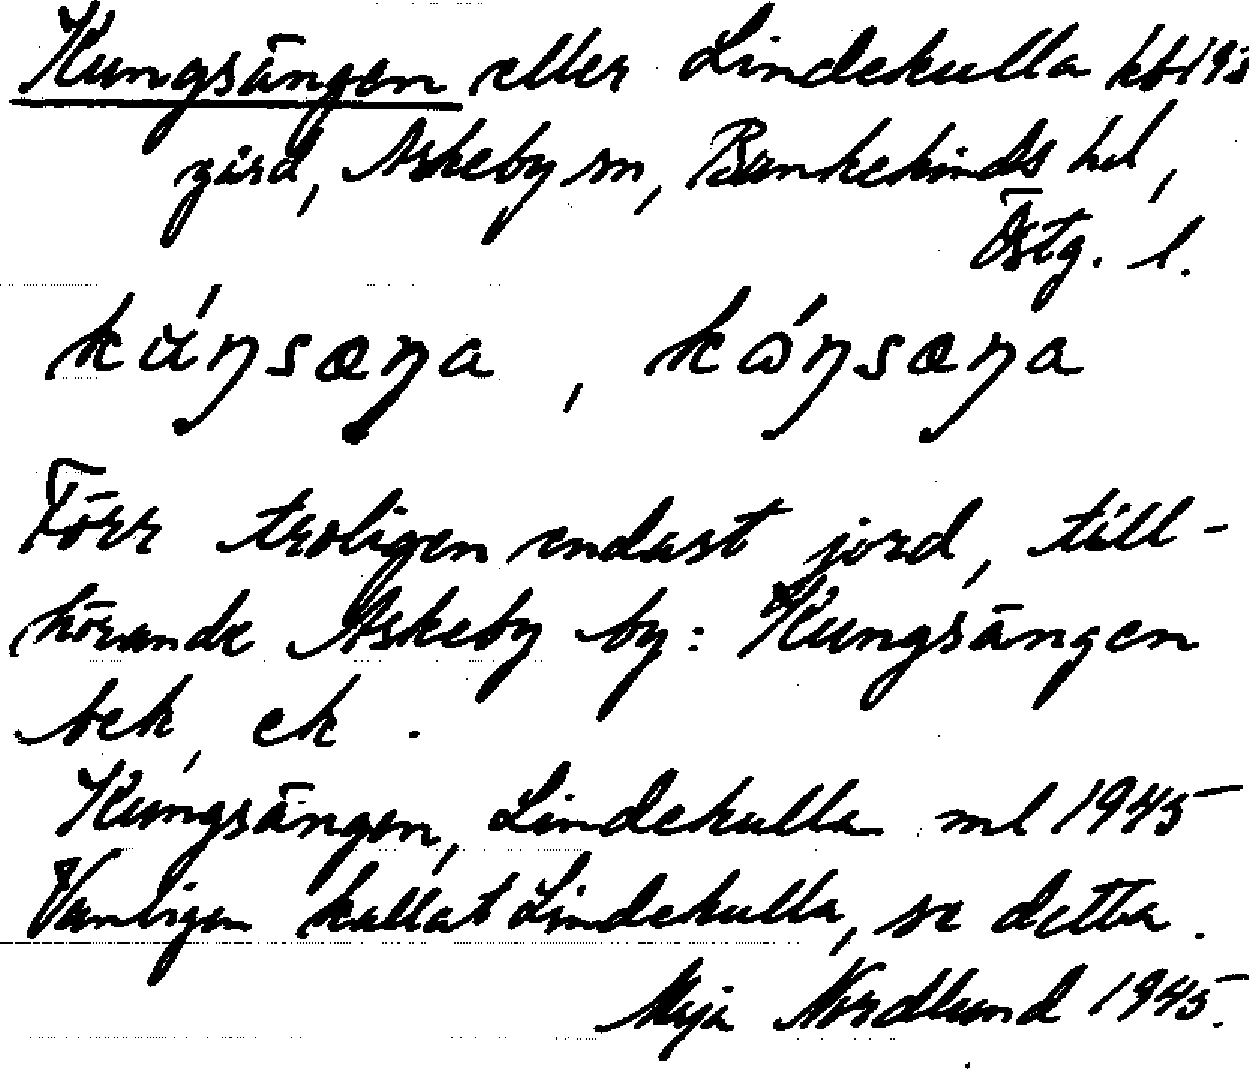 Kungsängen eller Lindekulla
gård, Askeby sn, Bankekinds hd,
Östg. l.
kúŋsæŋa, kóŋsæŋa
Förr troligen endast jord, till-
hörande Askeby by: Kungsängen
bek, ek.
Kungsängen, Lindekulla ml 1945
Vanligen kallat Lindekulla, se detta.
Maja Nordlund 1945.